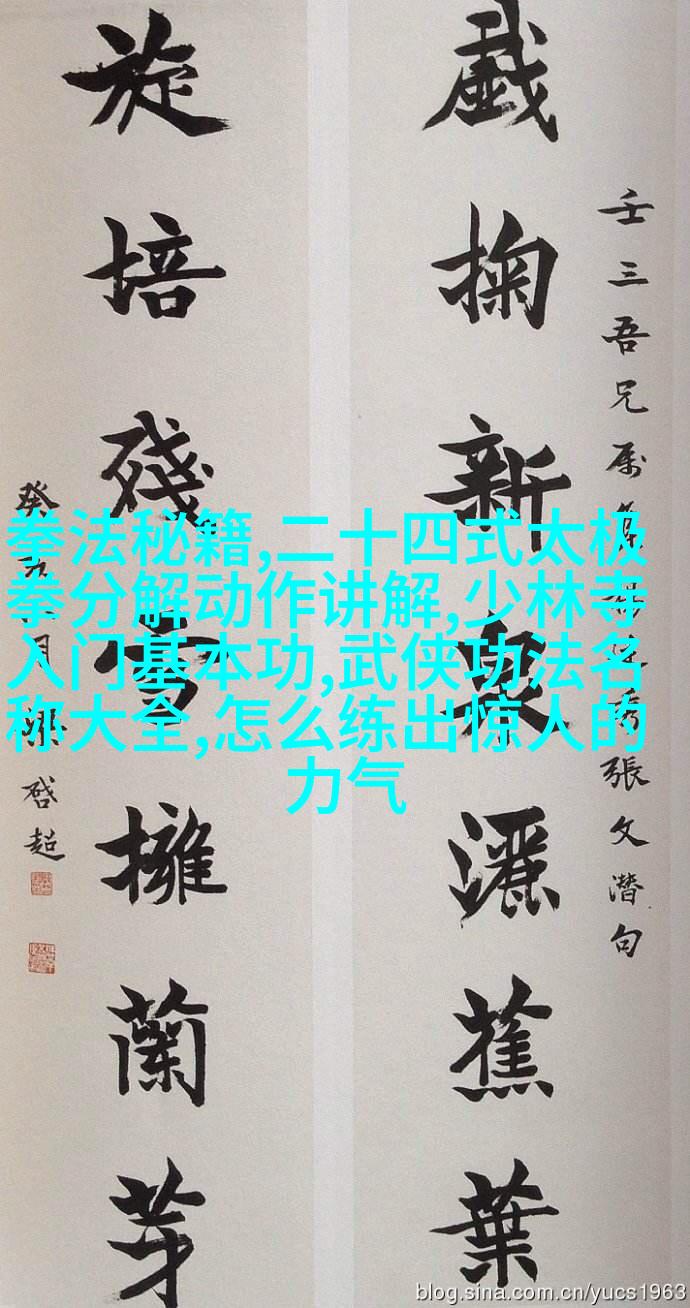 壬三吾兄属張文潛句
戲掬新泉灑蕉葉
旋培殘雪擁蘭芽
癸月啓超
拳法秘籍,二十四式太极
拳分解动作讲解,少林寺
入门基本功,武侠功法名
称大全,怎么练出惊人的
力气
blog.sina.com.cn/yucs1963